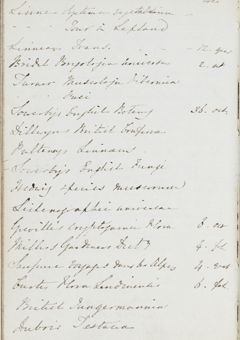 Linne Systema Vegetabilium
Tour in Lapland
Linnean Trans. 12
Bridel Muscologia universa 2
Turner Muscologia Hibernica
Fuci
Sowerby's English Botany 36. oct
Dillwyn's British Confervæ
Pulteney's Linnæus
Sowerby's English Fungi
Hedwig species muscorum
Lichenographia universa
Greville's Cryptogamic Flora 6. oct
Miller's Gardeners Dicty 4. fol
Saussure Voyages dans les Alpes 4. oct
Curtis Flora Londinensis 6. fol
British Jungermannia
Testacea